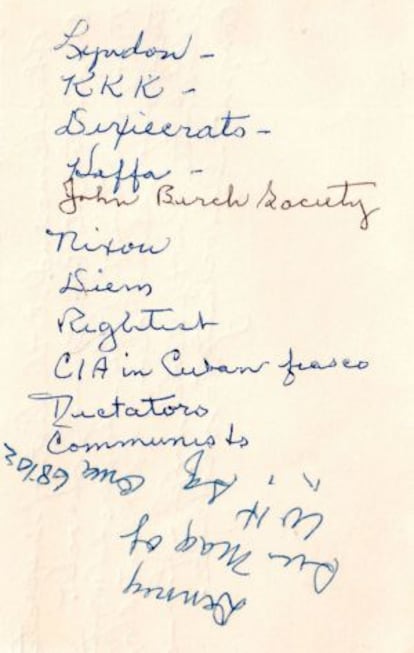 Lyndon -
KKK -
Dixiecrats -
Hoffa -
John Birch Society
Nixon
Diem
Rightist
CIA in Cuban fiasco
Dictators
Communists
Mag of
W H